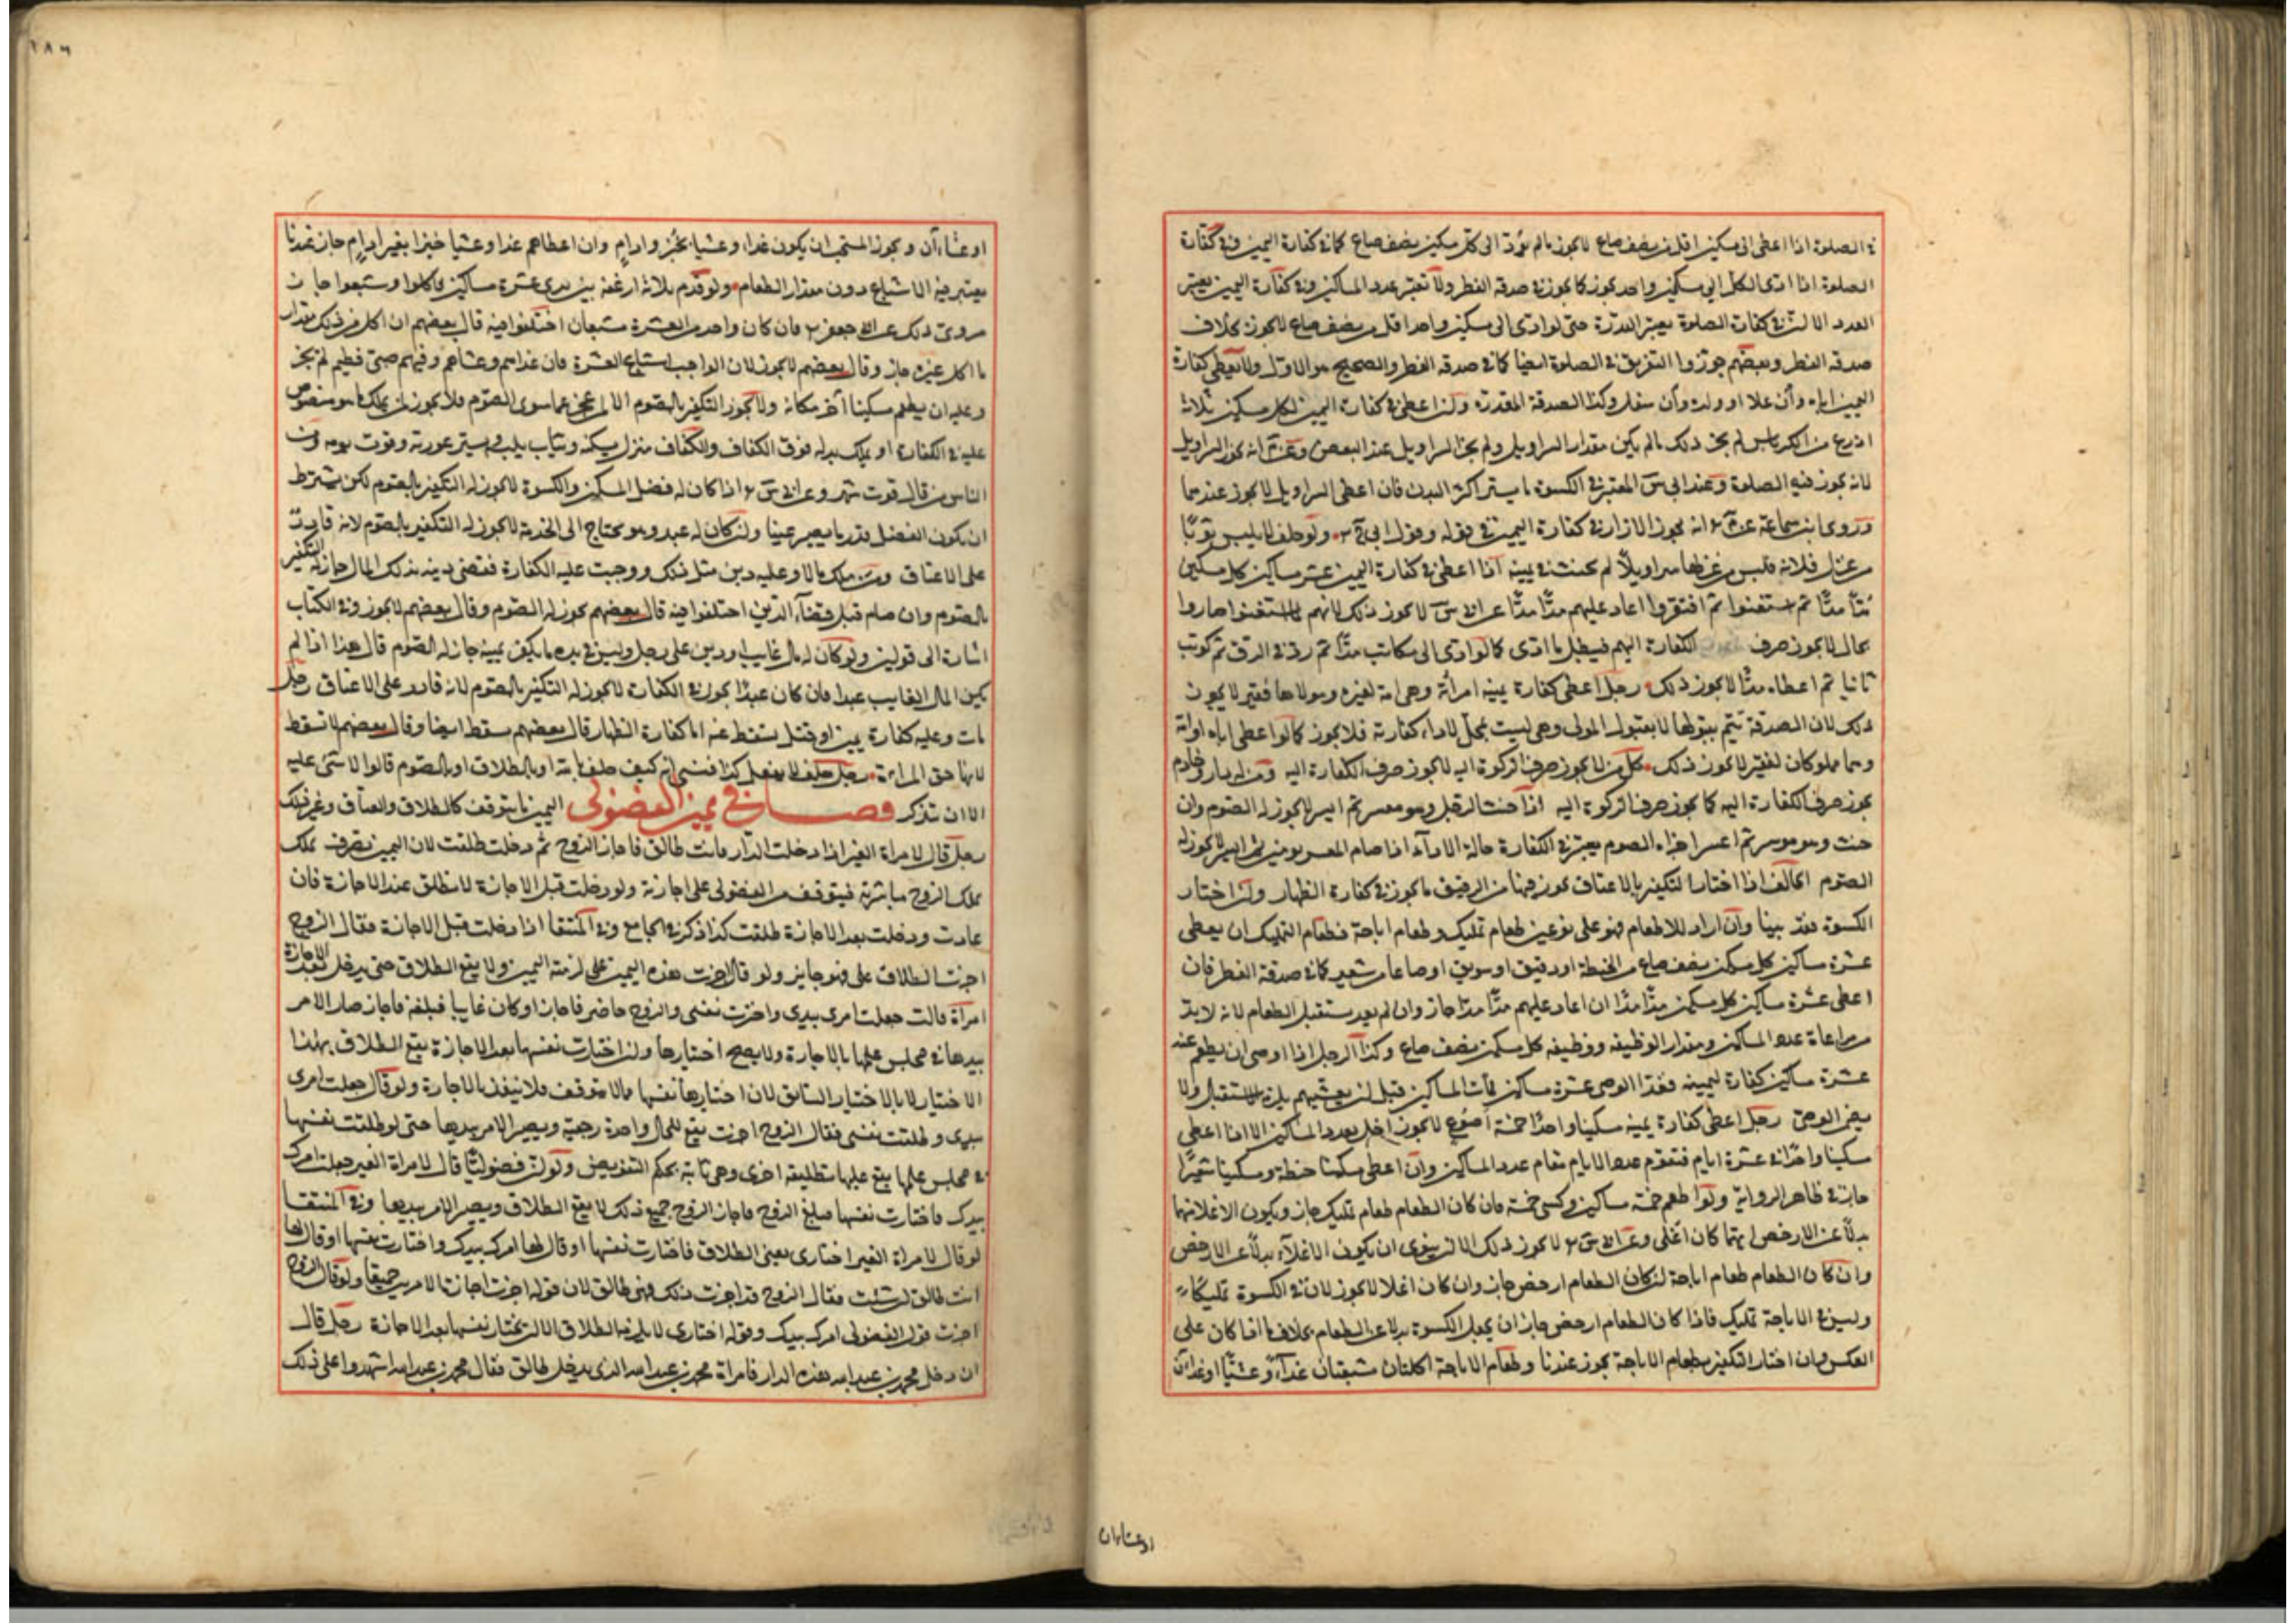 في الصلوة اذا اعطى الى مسكين اقل من نصف صاع لا يجوز ما لم يؤد الى كل مسكين نصف صاع كما في كفارة اليمين وفي كفارة
الصلوة اذا ادى الكل الى مسكين واحد يجوز كما يجوز في صدقة الفطر ولا تعتبر عدد المساكين وفي كفارة اليمين يعتبر
العدد الا ان في كفارت الصلوة يعتبر القدرة حتى لو ادى الى مسكين واحد اقل من نصف صاع لا يجوز بخلاف
صدقة الفطر وبعضهم جوزوا التفريق في الصلوة ايضا كما في صدقة الفطر والصحيح هو الاول ولا يعطى كفارة
اليمين اباه وان علا او ولده وان سفل وكذا الصدقة المقدرة وان اعطى في كفارة اليمين لكل مسكين ثلاثة
اذرع من الكرباس لم يجز ذلك ما لم يكن مقدار السراويل ولم يجز السراويل عند البعض وعن م انه يجوز السراويل
لانه يجوز فيه الصلوة وعند ابي س المعتبر في الكسوة ما يستر اكثر البدن فان اعطى السراويل لا يجوز عندهما
وروى ابن سماعة عن م انه يجوز الازار في كفارة اليمين في قوله وقول ابي ح ولو حلف لا يلبس ثوبا
من غزل فلانة فلبس من غزلها سراويلا لم يحنث في يمينه اذا اعطى في كفارة اليمين عشر مساكين كل مسكين
مدا مدا ثم استغنوا ثم افتقروا اعاد عليهم مدا مدا عن ابي س لا يجوز ذلك لانهم لما استغنوا صاروا
بحال لا يجوز صرف الكفارة اليهم فيبطل ما ادى كما لو ادى الى مكاتب مدا ثم رد في الرق ثم كوتب
ثانيا ثم اعطاه مدا لا يجوز ذلك رجل اعطى كفارة يمينه امرأة وهي امة لغيره ومولاها فقير لا يجوز
ذلك لان الصدقة تتم بقبولها لا بقبول المولى وهي ليست بمحل لاداء كفارته فلا يجوز كما لو اعطى اباه او ابنه
وهما مملوكان لفقير لا يجوز ذلك كل من لا يجوز صرف الزكوة اليه لا يجوز صرف الكفارة اليه ومن له دار وخادم
يجوز صرف الكفارة اليه كما يجوز صرف الزكوة اليه اذا حنث الرجل وهو معسر ثم ايسر لا يجوز له الصوم وان
حنث وهو موسر ثم اعسر اجزاه الصوم يعتبر في الكفارة حالة الاداء اذا صام المعسر يومين ثم ايسر لا يجوز له
الصوم الحالف اذا اختار التكفير بالاعتاق يجوز فيها من الرقيق ما يجوز في كفارة الظهار وان اختار
الكسوة فقد بينا وان اراد للاطعام فهو على نوعين طعام تمليك وطعام اباحة فطعام التمليك ان يعطى
عشرة مساكين كل مسكين نصف صاع من الحنطة او دقيق او سويق او صاعا من شعير كما في صدقة الفطر فان
اعطى عشرة مساكين كل مسكين مدا مدا ان اعاد عليهم مدا مدا جاز وان لم يعد يستقبل الطعام لانه لا بد
من مراعاة عدد المساكين ومقدار الوظيفة ووظيفة كل مسكين نصف صاع وكذا الرجل اذا اوصى ان يطعم عنه
عشرة مساكين كفارة ليمينه فغدا الوصى عشرة مساكين فمات المساكين قبل ان يعشيهم يلزمه الاستقبال ولا
يضمن الوصى رجل اعطى كفارة يمينه مسكينا واحدا خمسة اصوع لا يجوز اخل بعدد المساكين الا اذا اعطى
مسكينا واحدا في عشرة ايام فتقوم عدد الايام مقام عدد المساكين وان اعطى مسكينا حنطة ومسكينا شعيرا
جاز في ظاهر الرواية ولو اطعم خمسة مساكين وكسى خمسة فان كان الطعام طعام تمليك جاز ويكون الاغلا منهما
بدلا عن الارخص ايهما كان اغلى وعن ابي س لا يجوز ذلك الا ان ينوى ان يكون الاغلا بدلا عن الارخص
وان كان الطعام طعام اباحة ان كان الطعام ارخص جاز وان كان اغلا لا يجوز لان في الكسوة تمليكا
وليس في الاباحة تمليك فاذا كان الطعام ارخص جاز ان يجعل الكسوة بدلا عن الطعام بخلاف ما اذا كان على
العكس وان اختار التكفير بطعام الاباحة يجوز عندنا وطعام الاباحة اكلتان مشبعتان غداء وعشيا او غداآن
او عشاءان
او عشاآن ويجوز المستحب ان يكون غداء وعشيا بخبز وادام وان اعطاهم غدا وعشيا خبزا بغير ادام جاز عندنا
يعتبر فيه الاشباع دون مقدار الطعام ولو قدم ثلاثة ارغفة بين يدي عشرة مساكين فاكلوا وشبعوا جاز
مروى ذلك عن ابي جعفر فان كان واحد من العشرة شبعان اختلفوا فيه قال بعضهم ان اكل من ذلك مقدار
ما اكل غيره جاز وقال بعضهم لا يجوز لان الواجب اشباع العشرة فان غداهم وعشاهم وفيهم صبى فطيم لم يجز
وعليه ان يطعم مسكينا آخر مكانه ولا يجوز التكفير بالصوم الا لمن عجز عما سوى الصوم فلا يجوز لمن يملك ما هو منصوص
عليه في الكفارة او يملك بدله فوق الكفاف والكفاف منزل يسكنه وثياب يلبسه ويستر عورته وقوت يومه ومن
الناس من قال قوت شهر وعن ابي س اذا كان له فضل المسكن والكسوة لا يجوز له التكفير بالصوم لكن يشترط
ان يكون الفضل بقدر ما يصير غنيا وان كان له عبد وهو محتاج الى الخدمة لا يجوز له التكفير بالصوم لانه قادر
على الاعتاق ومن ملك مالا وعليه دين مثل ذلك ووجبت عليه الكفارة فقضى دينه بذلك المال جاز له التكفير
بالصوم وان صام قبل قضاء الدين اختلفوا فيه قال بعضهم يجوز له الصوم وقال بعضهم لا يجوز وفي الكتاب
اشارة الى قولين ولو كان له مال غايب او دين على رجل وليس في يده ما يكفر يمينه جاز له الصوم قال هذا اذا لم
يكن المال الغايب عبدا فان كان عبدا يجوز في الكفارة لا يجوز له التكفير بالصوم لانه قادر على الاعتاق رجل
مات وعليه كفارة يمين او قتل يسقط عنه اما كفارة الظهار قال بعضهم سقط ايضا وقال بعضهم لا تسقط
لانها حق المراة رجل حلف لا يفعل كذا فنسى انه كيف حلف بالله او بالطلاق او بالصوم قالوا لا شئ عليه
الا ان يتذكر فصل في يمين الفضولى اليمين ما يتوقف كالطلاق والعتاق وغير ذلك
رجل قال لامراة الغير اذا دخلت الدار فانت طالق فاجاز الزوج ثم دخلت طلقت لان اليمين تصرف يملك
يملك الزوج مباشرته فيتوقف من الفضولى على اجازته ولو دخلت قبل الاجازة لا تطلق عند الاجازة فان
عادت ودخلت بعد الاجازة طلقت كذا ذكر في الجامع وفي المنتقا اذا دخلت قبل الاجازة فقال الزوج
اجزت الطلاق على فهو جايز ولو قال اجزت هذه اليمين على لزمته اليمين ولا يقع الطلاق حتى يدخل بعد الاجازة
امرأة قالت جعلت امرى بيدى واخترت نفسى والزوج حاضر فاجاز او كان غايبا فبلغه فاجاز صار الامر
بيدها في مجلس علمها بالاجازة ولا يصح اختيارها وان اختارت نفسها بعد الاجازة يقع الطلاق بهذا
الاختيار لا بالاختيار السابق لان اختيارها نفسها مما لا يتوقف فلا ينفذ بالاجازة ولو قال جعلت امرى
بيدى وطلقت نفسى فقال الزوج اجزت يقع للحال واحدة رجعية ويصير الامر بيدها حتى لو طلقت نفسها
في مجلس علمها يقع عليها تطليقة اخرى وهي ثابتة بحكم التفويض ولو ان فضوليا قال لامراة الغير جعلت امرك
بيدك فاختارت نفسها فبلغ الزوج فاجاز الزوج جميع ذلك لا يقع الطلاق ويصير الامر بيدها وفي المنتقا
لو قال لامراة الغير اختارى يعنى الطلاق فاختارت نفسها او قال لها امرك بيدك واختارت نفسها او قال لها
انت طالق ان شئت فقال الزوج قد اجزت ذلك فهى طالق لان قوله اجزت اجازة الامرين جميعا ولو قال الزوج
اجزت قول الفضولى امرك بيدك وقوله اختارى لا يلزمه الطلاق الا ان تختار نفسها بعد الاجازة رجل قال
ان دخل محمد بن عبد الله هذه الدار فامراة محمد بن عبد الله الذى يدخل طالق فقال محمد بن عبد الله اشهدوا على ذلك